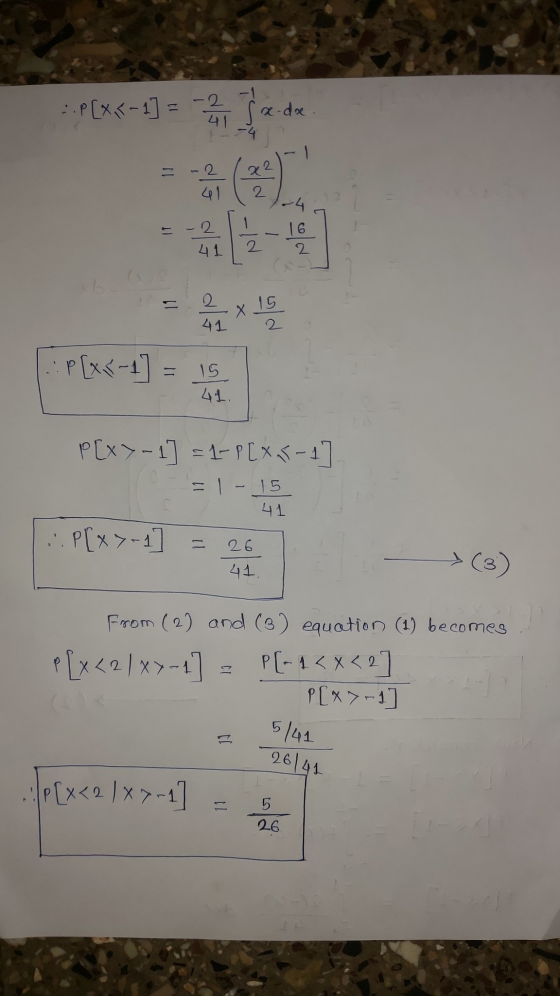 ∴ P[x≤-1] = -2/41 ∫_{-4}^{-1} x·dx.
= -2/41 (x²/2)_{-4}^{-1}
= -2/41 [1/2 - 16/2]
= 2/41 × 15/2
∴ P[x≤-1] = 15/41.
P[x>-1] = 1-P[x≤-1]
= 1 - 15/41
∴ P[x>-1] = 26/41. → (3)
From (2) and (3) equation (1) becomes
P[x<2/x>-1] = P[-1<x<2] / P[x>-1]
= 5/41 / 26/41
∴ P[x<2/x>-1] = 5/26